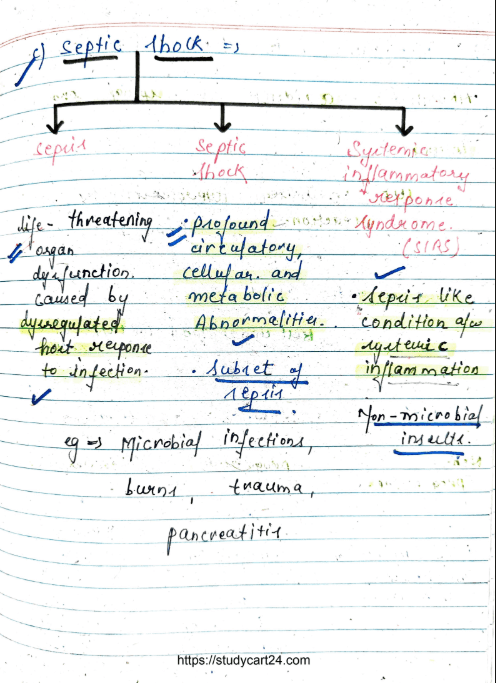 c) Septic Shock. =>
Sepsis
life-threatening
organ
dysfunction.
caused by
dysregulated
host response
to infection.
Septic
Shock
• Profound
circulatory,
cellular. and
metabolic
Abnormalities.
• Subset of
sepsis
Systemic
inflammatory
response
syndrome.
(SIRS)
• Sepsis like
condition a/w
systemic
inflammation
Non-microbial
insults.
eg => Microbial infections,
burns, trauma,
pancreatitis.
https://studycart24.com